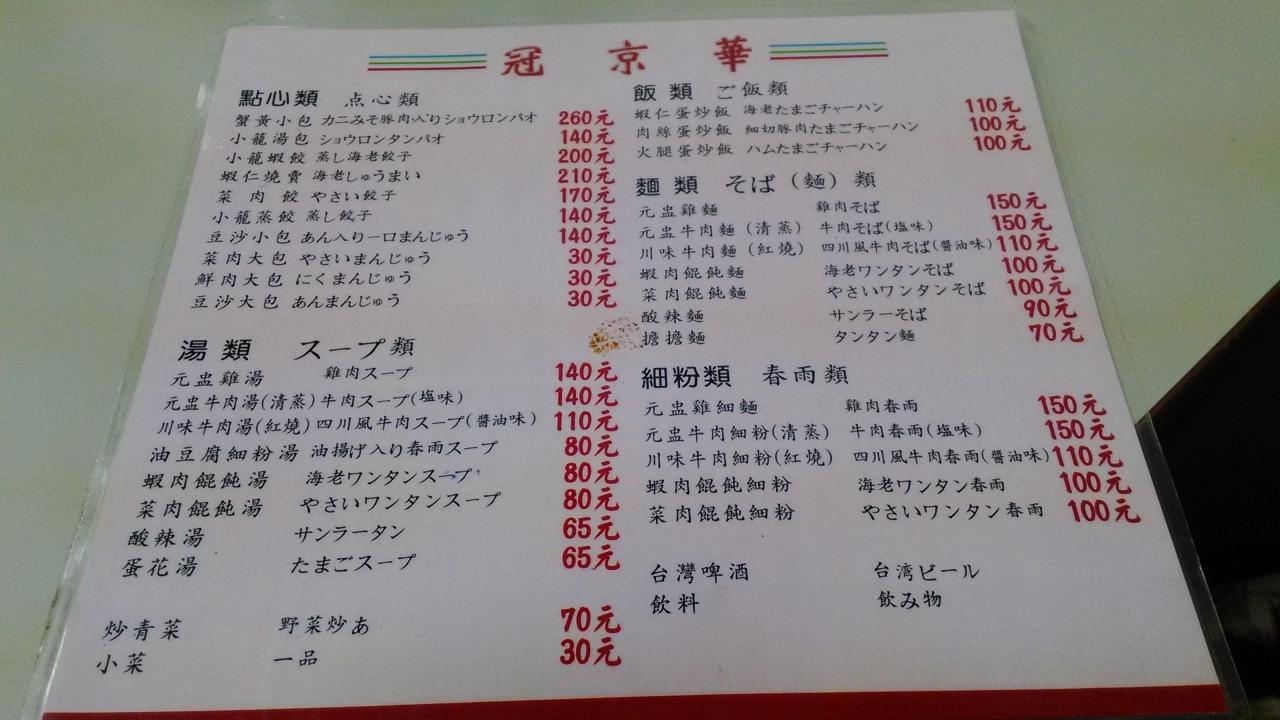 冠 京 華
點心類 点心類
蟹黃小包 カニみそ豚肉入りショウロンパオ 260元
小龍湯包 ショウロンタンパオ 140元
小龍蝦餃 蒸し海老餃子 200元
蝦仁燒賣 海老しゅうまい 210元
菜肉餃 やさい餃子 170元
小龍蒸餃 蒸し餃子 140元
豆沙小包 あん入り一口まんじゅう 140元
菜肉大包 やさいまんじゅう 30元
鮮肉大包 にくまんじゅう 30元
豆沙大包 あんまんじゅう 30元
湯類 スープ類
元盅雞湯 雞肉スープ 140元
元盅牛肉湯(清蒸) 牛肉スープ(塩味) 140元
川味牛肉湯(紅燒) 四川風牛肉スープ(醬油味) 110元
油豆腐細粉湯 油揚げ入り春雨スープ 80元
蝦肉餛飩湯 海老ワンタンスープ 80元
菜肉餛飩湯 やさいワンタンスープ 80元
酸辣湯 サンラータン 65元
蛋花湯 たまごスープ 65元
炒青菜 野菜炒あ 70元
小菜 一品 30元
飯類 ご飯類
蝦仁蛋炒飯 海老たまごチャーハン 110元
肉絲蛋炒飯 細切豚肉たまごチャーハン 100元
火腿蛋炒飯 ハムたまごチャーハン 100元
麵類 そば（麵）類
元盅雞麵 雞肉そば 150元
元盅牛肉麵（清蒸） 牛肉そば(塩味) 150元
川味牛肉麵（紅燒） 四川風牛肉そば(醬油味) 110元
蝦肉餛飩麵 海老ワンタンそば 100元
菜肉餛飩麵 やさいワンタンそば 100元
酸辣麵 サンラーそば 90元
擔擔麵 タンタン麵 70元
細粉類 春雨類
元盅雞細麵 雞肉春雨 150元
元盅牛肉細粉(清蒸) 牛肉春雨(塩味) 150元
川味牛肉細粉(紅燒) 四川風牛肉春雨(醬油味) 110元
蝦肉餛飩細粉 海老ワンタン春雨 100元
菜肉餛飩細粉 やさいワンタン春雨 100元
台灣啤酒 台湾ビール
飲料 飲み物